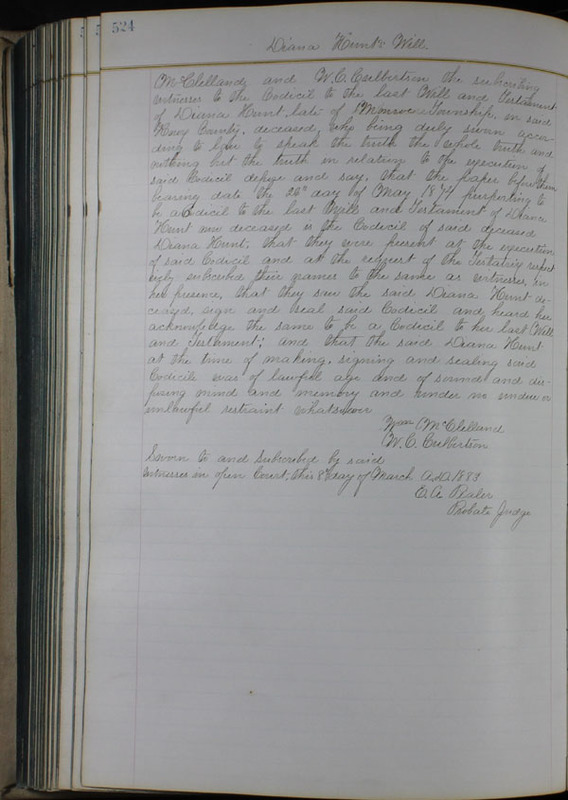 524
Diana Hunt's Will.
McClelland, and W.C. Culbertson the subscribing
witnesses to the Codicil to the last Will and Testament
of Diana Hunt, late of Monroe Township, in said
County, deceased, who being duly sworn accor-
ding to law to speak the truth the whole truth and
nothing but the truth in relation to the execution of
said Codicil depose and say, that the paper before them
bearing date the 26" day of May 1874 purporting to
be a Codicil to the last Will and Testament of Diana
Hunt now deceased is the Codicil of said deceased
Diana Hunt; that they were present at the execution
of said Codicil and at the request of the Testatrix respect
ively subscribed their names to the same as witnesses, in
her presence, that they saw the said Diana Hunt de-
ceased, sign and seal said Codicil and heard her
acknowledge the same to be a Codicil to her last Will
and Testament; and that the said Diana Hunt
at the time of making, signing and sealing said
Codicil was of lawful age and of sound and dis-
posing mind and memory and under no undue or
unlawful restraint whatsoever
Wm McClelland
W.C. Culbertson
Sworn to and subscribed by said
witnesses in open Court, this day of March A.D. 1883
Probate Judge